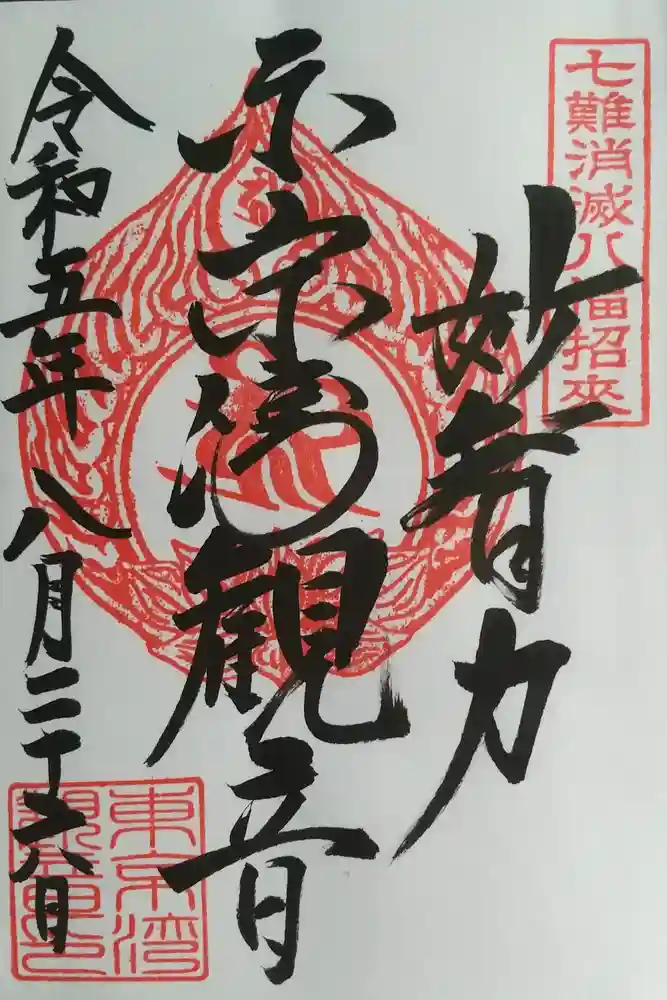 七難消滅八福招来
妙智力
東京湾観音
令和五年八月二十六日
東京湾
観音印